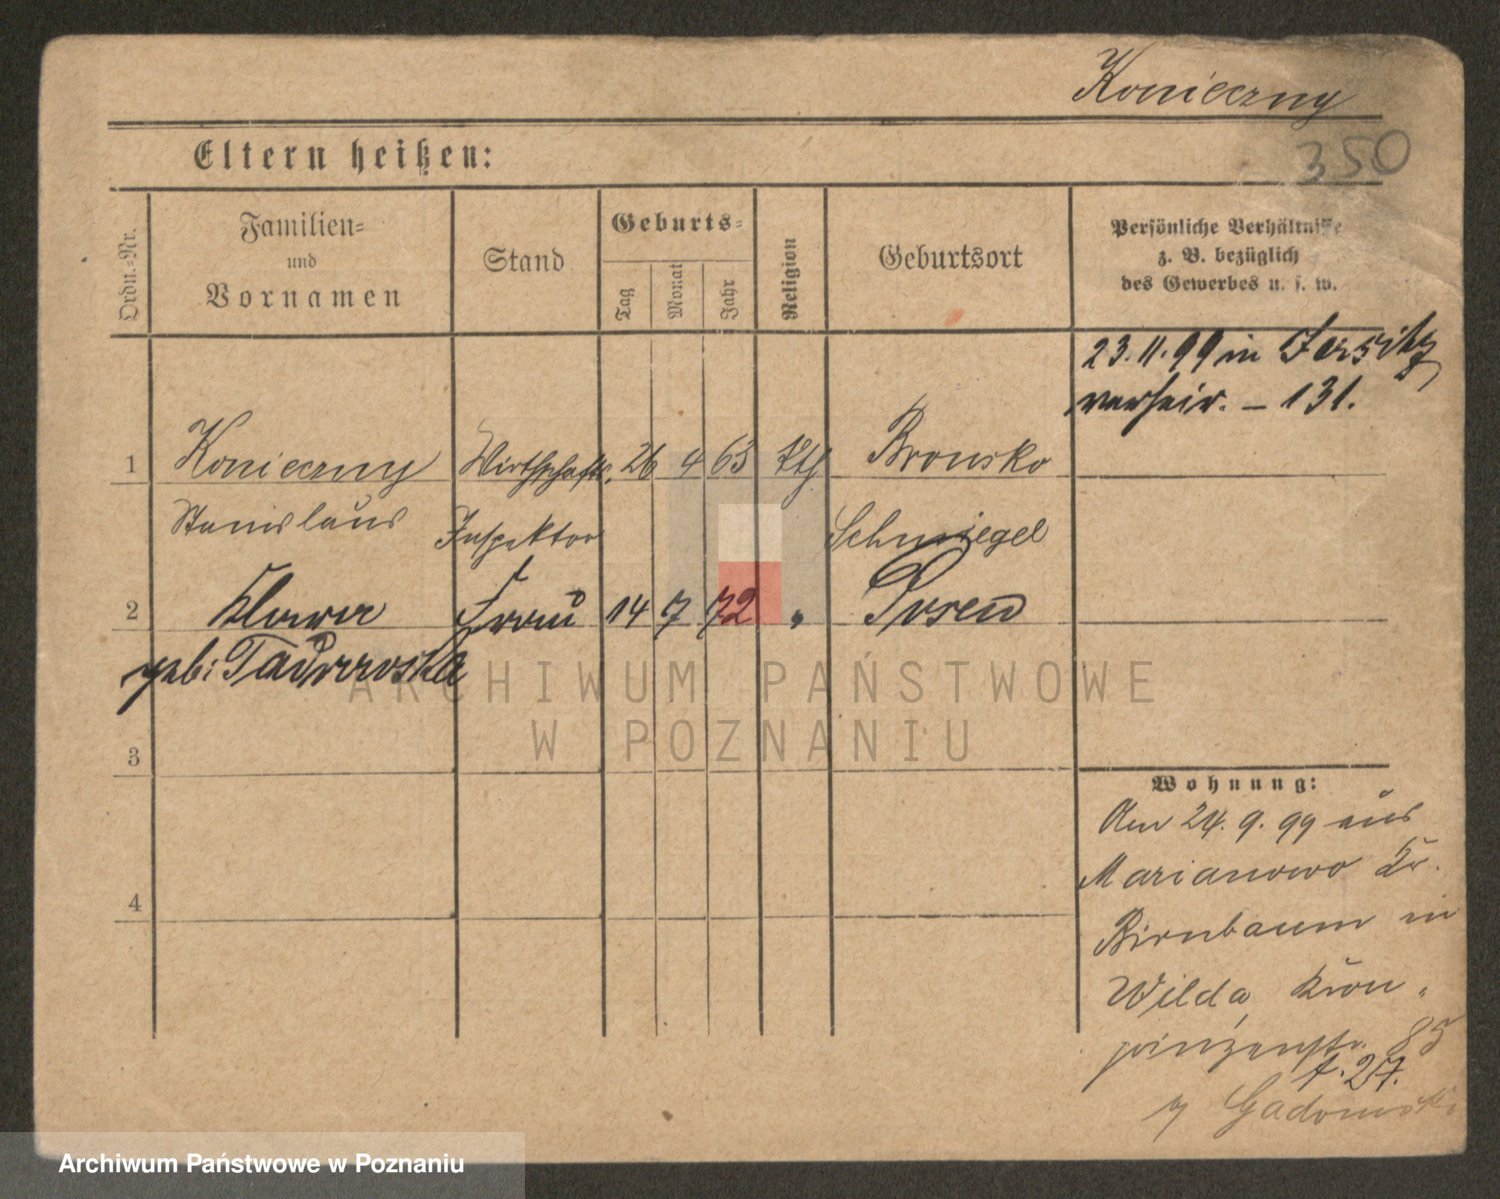 Konieczny
350
Eltern heißen:
Ordn.-Nr.
Familien-
und
Vornamen
Stand
Geburts-
Tag
Monat
Jahr
Religion
Geburtsort
Persönliche Verhältnisse
z. B. bezüglich
des Gewerbes u. s. w.
23.11.99 in Jersitz
verheir. – 131.
1 Konieczny Wirthschafts. 26 4 63 kth Bronsko
Stanislaus Inspektor Schmiegel
2 Klara Frau 14 7 72 " Posen
geb:
3
4
Wohnung:
Am 24. 9. 99 aus
Marianowo Kr.
Birnbaum in
Wilda, Kron-
prinzenstr. 85
t. 27.
Gadomski
ARCHIWUM PAŃSTWOWE
W POZNANIU
Archiwum Państwowe w Poznaniu